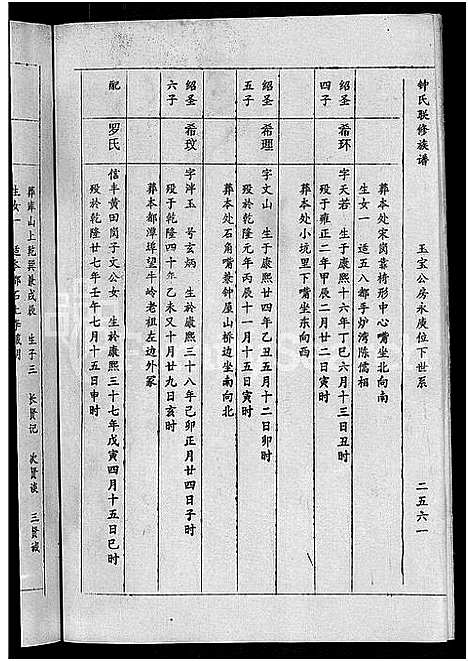 钟氏联修族谱 玉宝公房永庚位下世系 二五六一
葬本处宋岗靠椅形中心嘴坐北向南
生女一 适五八都手炉湾陈儒相
绍圣四子 希环 字天若 生于康熙十六年丁巳六月十三日丑时
殁於雍正二年甲辰二月廿二日寅时
葬本处小坑里下嘴坐东向西
绍圣五子 希理 字文山 生于康熙廿四年乙丑五月十二日卯时
殁於乾隆元年丙辰十一月十五日寅时
葬本处石角嘴茶钟屋山桥边坐南向北
绍圣六子 希玟 字泮玉 号玄炳 生於康熙三十八年己卯正月廿四日子时
殁于乾隆四十年乙未又十月廿九日亥时
葬本都漳埠望牛岭老祖左边外冢
配 罗氏 信丰黄田岗子文公女 生於康熙三十七年戊寅四月十五日巳时
殁於乾隆廿七年壬午七月十五日申时
山上乾巽兼戌辰 生子三 长贤记 次贤谈 三贤诚
生女一 适本都石